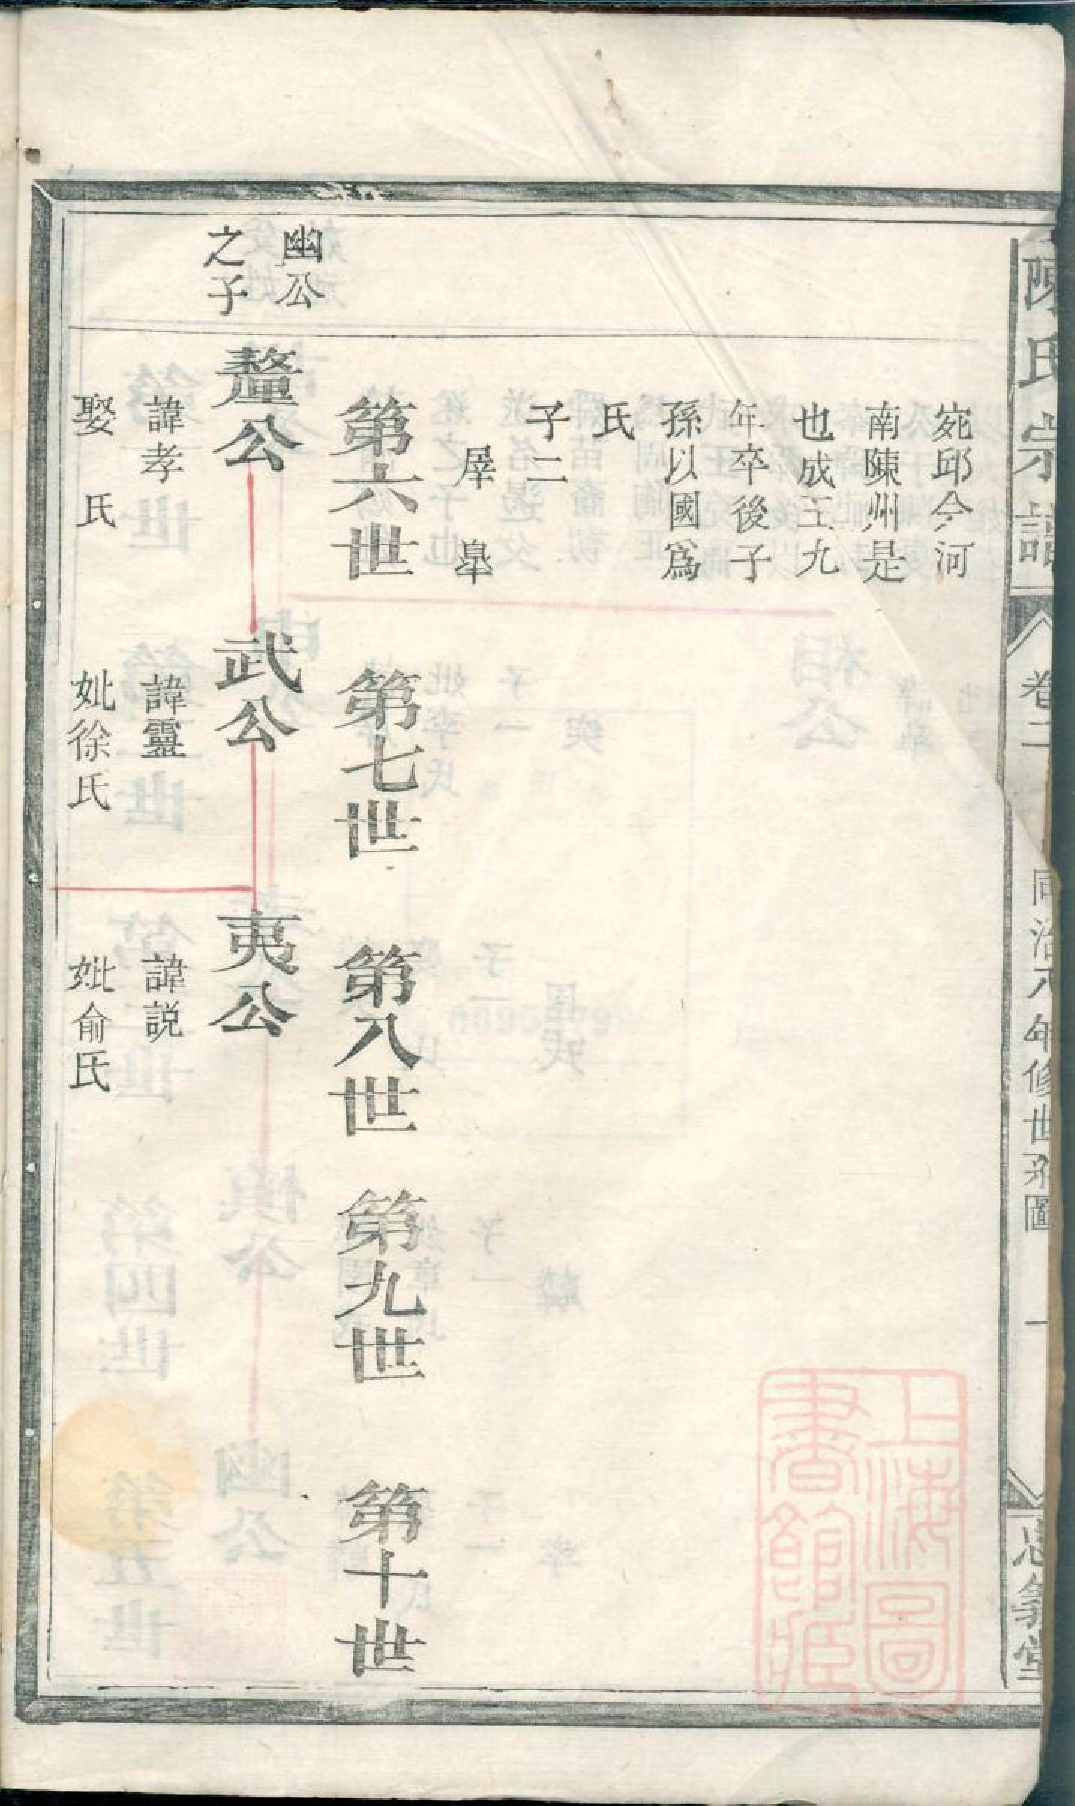 陳氏宗譜
卷二
同治八年修世系圖
一
忠義堂
宛邱今河
南陳州是
也成王九
年卒後子
孫以國爲
氏
子二
犀 臯
第六世
第七世
第八世
第九世
第十世
幽公
之子
釐公
諱孝
娶 氏
武公
諱靈
妣徐氏
夷公
諱説
妣俞氏
上海圖
書館藏